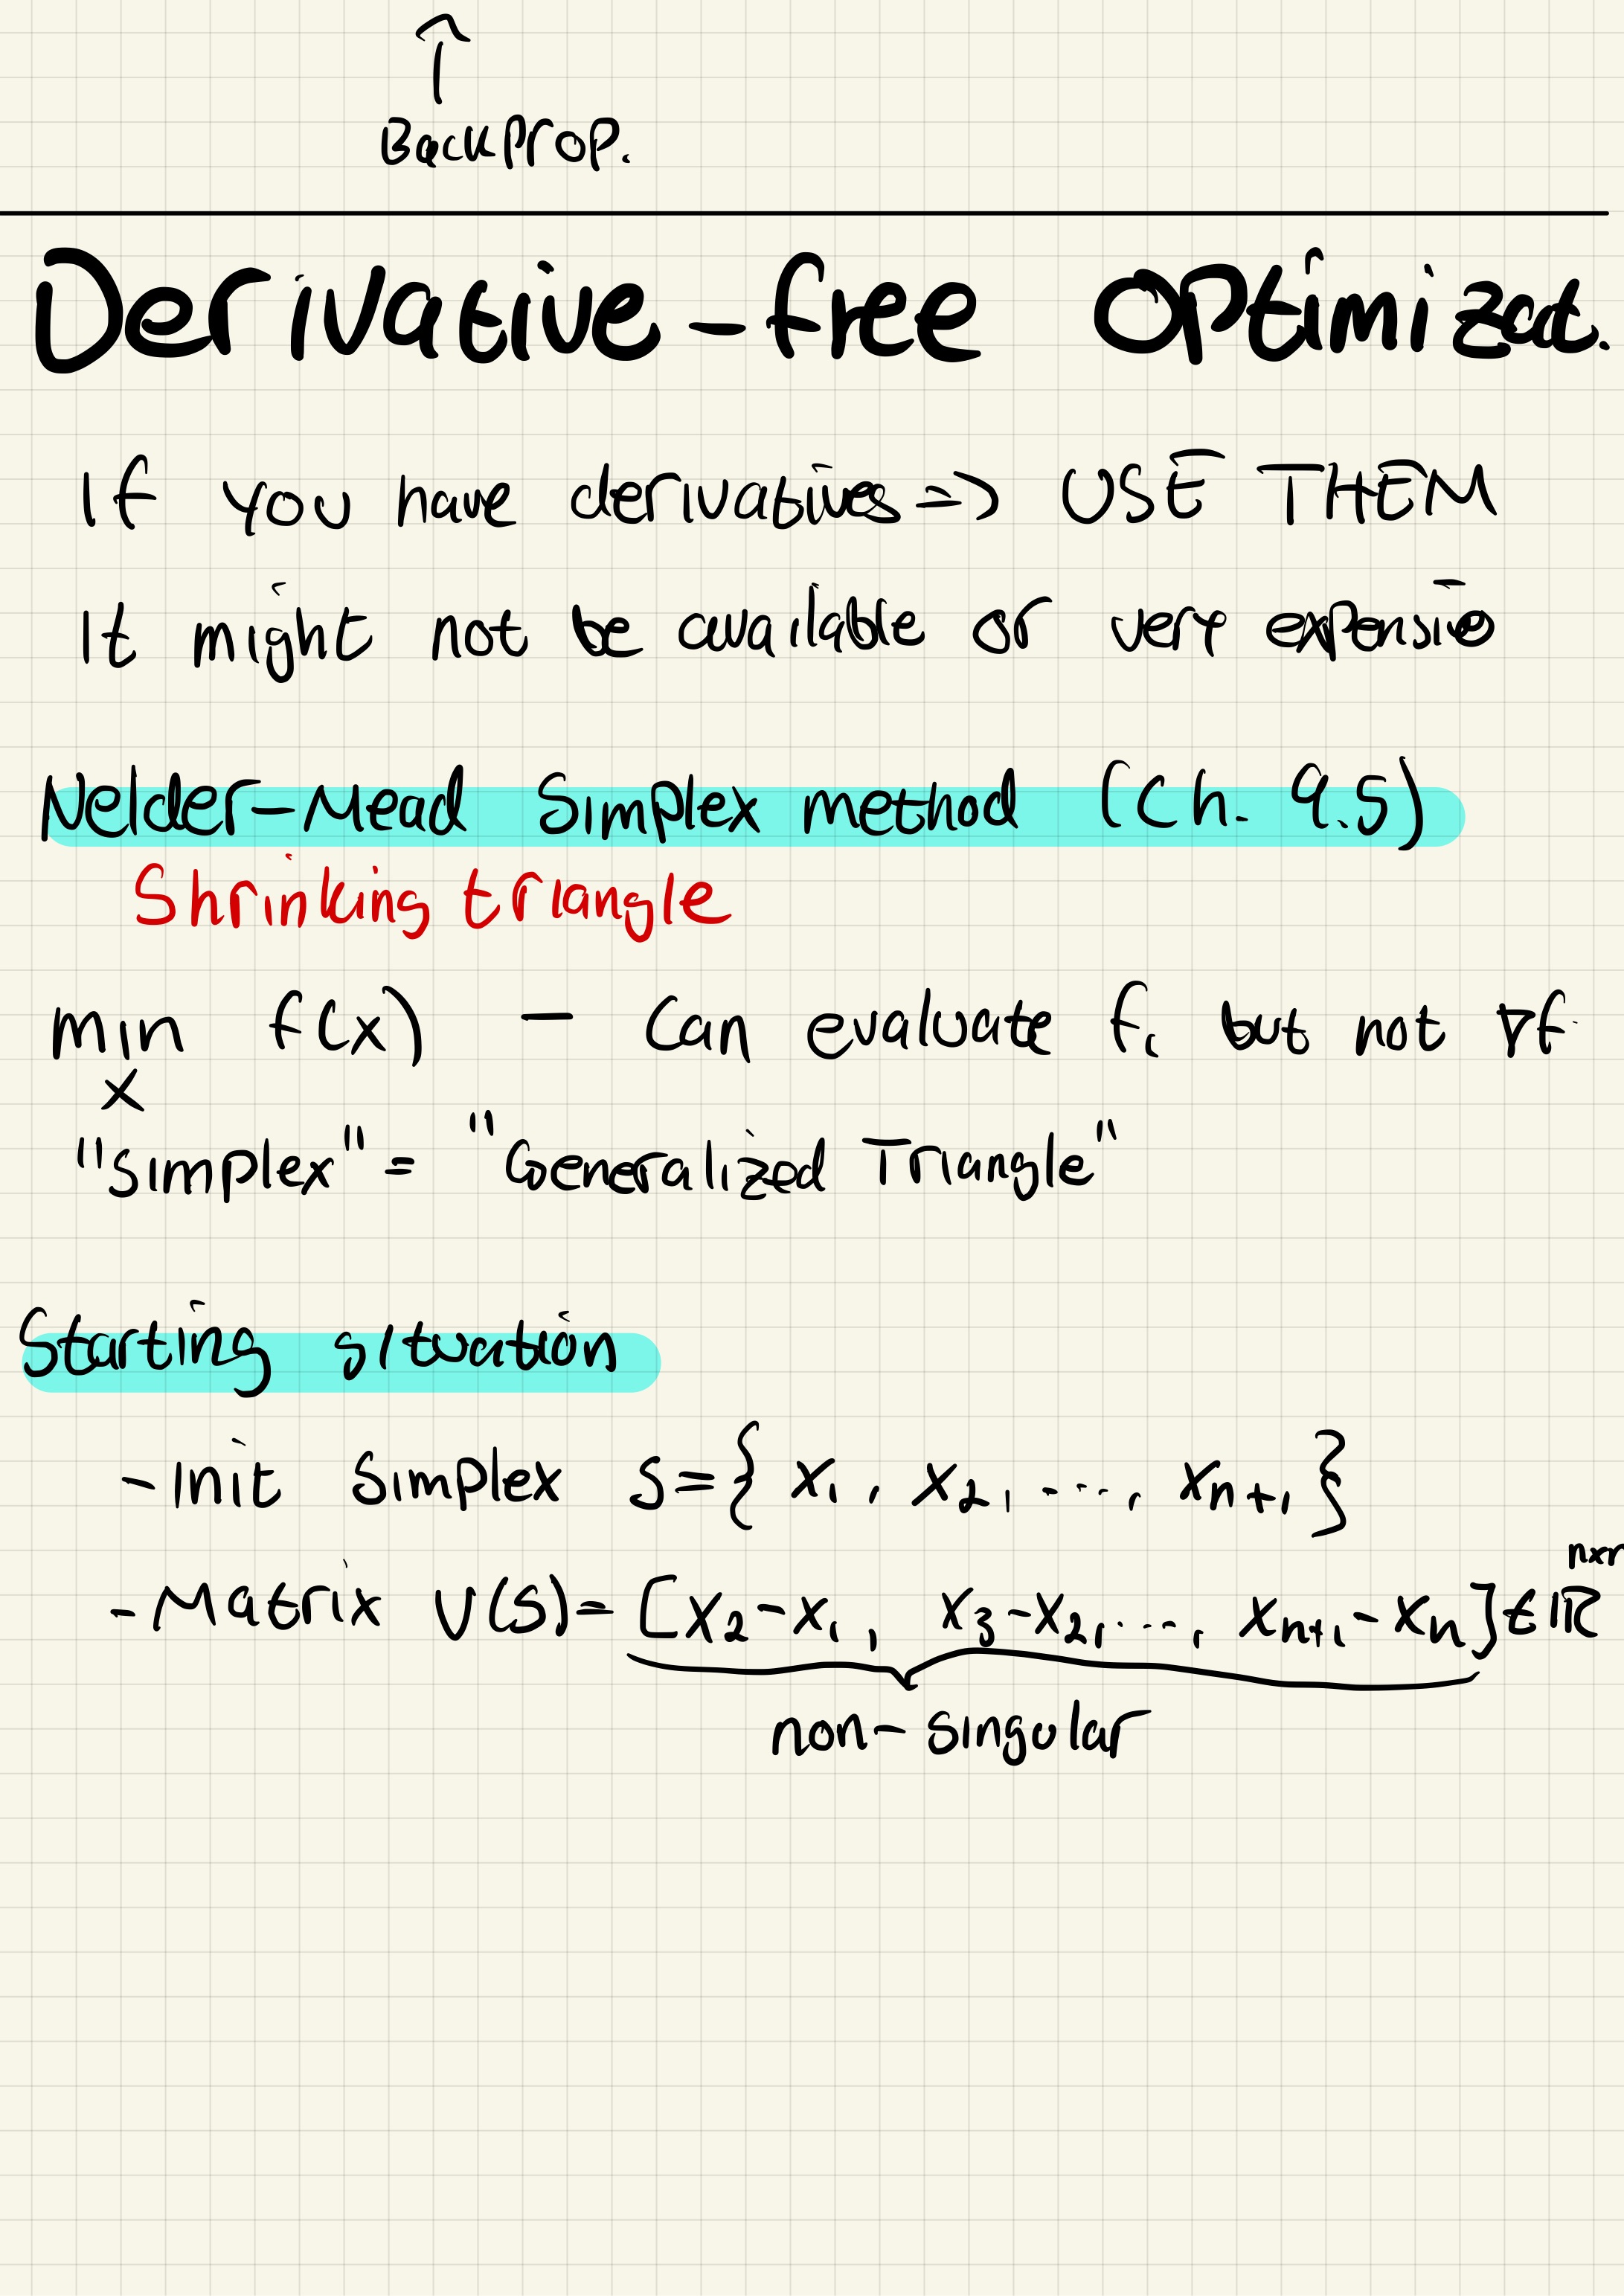 ↑
Backprop.
Derivative-free Optimizat.
If you have derivatives => USE THEM
It might not be available or very expensive
Nelder-Mead Simplex method (Ch. 9.5)
Shrinking triangle
min f(x) — Can evaluate f, but not ∇f
x
"simplex" = "Generalized Triangle"
Starting situation
- Init simplex S = { x₁, x₂, ..., xₙ₊₁ }
- Matrix V(S) = [x₂ - x₁, x₃ - x₂, ..., xₙ₊₁ - xₙ] ∈ ℝⁿˣⁿ
non-singular